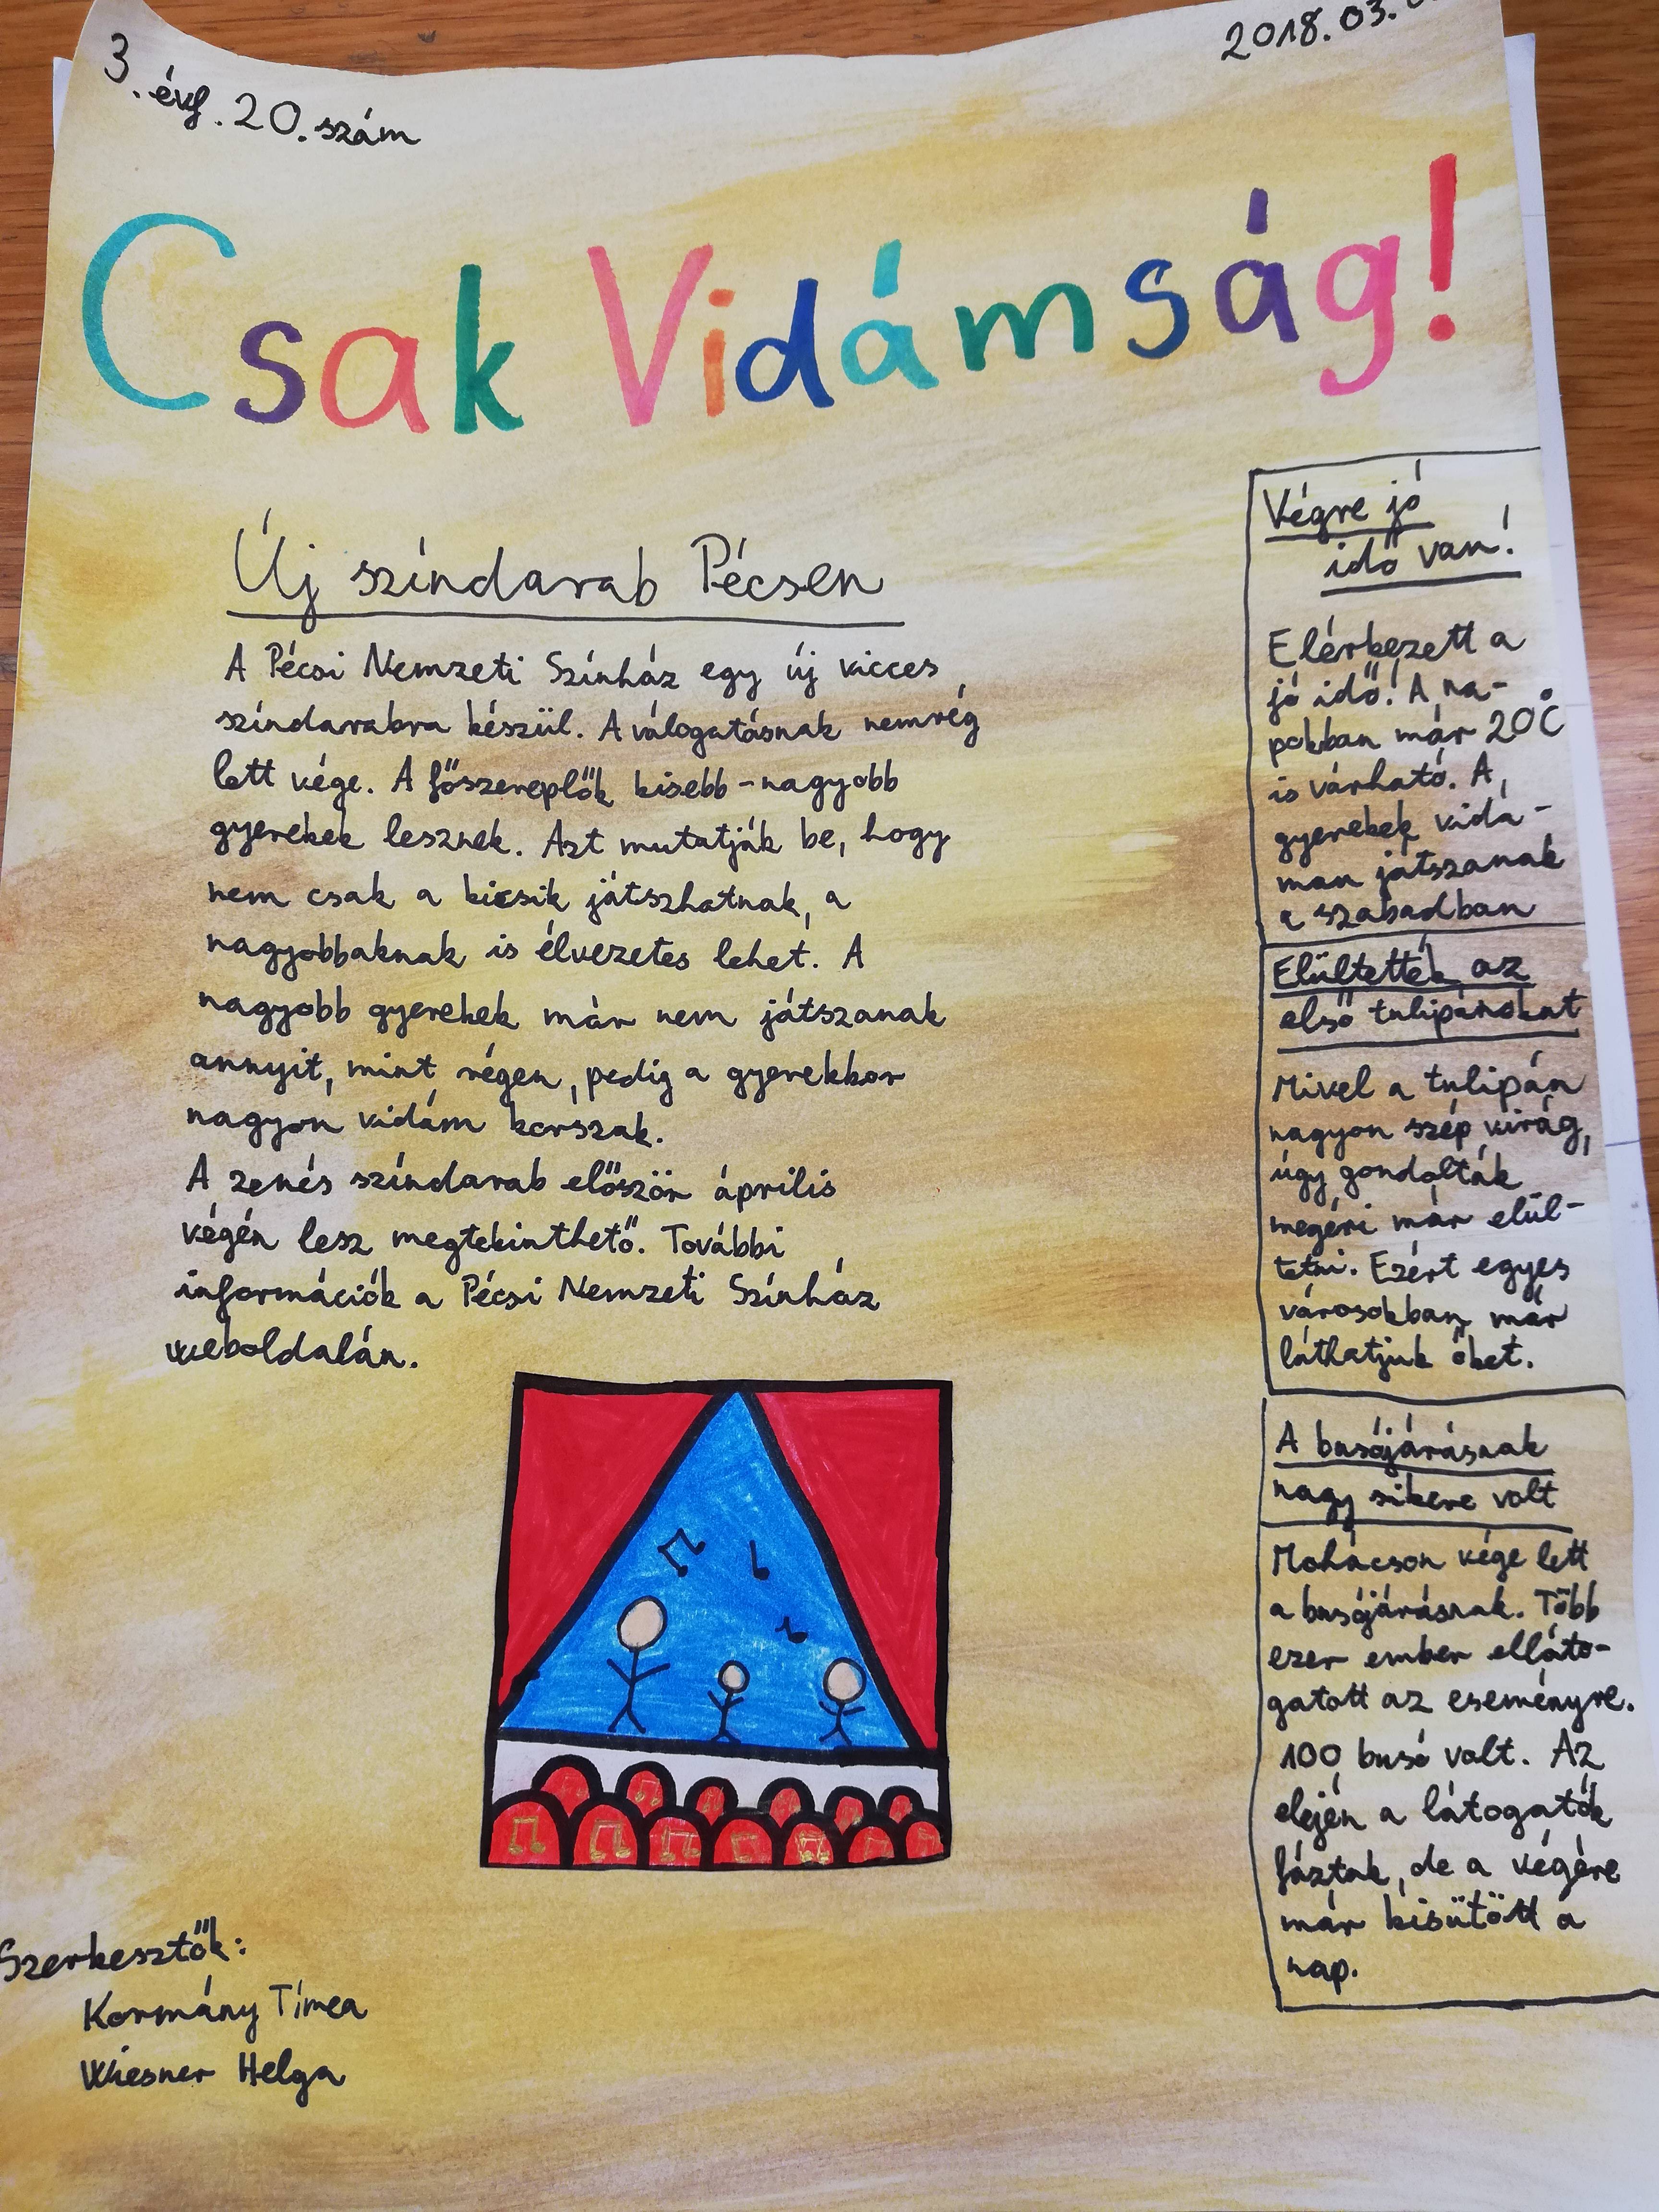 3. évf. 20. szám
2018.03.
Csak Vidámság!
Új színdarab Pécsen
A Pécsi Nemzeti Színház egy új vicces
színdarabra készül. A válogatásnak nemrég
lett vége. A főszereplők kisebb-nagyobb
gyerekek lesznek. Azt mutatják be, hogy
nem csak a kicsik játszhatnak, a
nagyobbaknak is élvezetes lehet. A
nagyobb gyerekek már nem játszanak
annyit, mint régen, pedig a gyerekkor
nagyon vidám korszak.
A zenés színdarab először április
végén lesz megtekinthető. További
információk a Pécsi Nemzeti Színház
weboldalán.
Szerkesztők:
Kormány Tímea
Wiesner Helga
Végre jó
idő van!
Elérkezett a
jó idő! A na-
pokban már 20°C
is várható. A
gyerekek vida-
man játszanak
a szabadban
Elültették az
első tulipánokat
Mivel a tulipán
nagyon szép virág,
úgy gondolták
megéri már elül-
tetni. Ezért egyes
városokban már
láthatjuk őket.
A busójárásnak
nagy sikere volt
Mohácson vége lett
a busójárásnak. Több
ezer ember elláto-
gatott az eseményre.
100 busó volt. Az
elején a látogatók
fáztak, de a végére
már kisütött a
nap.